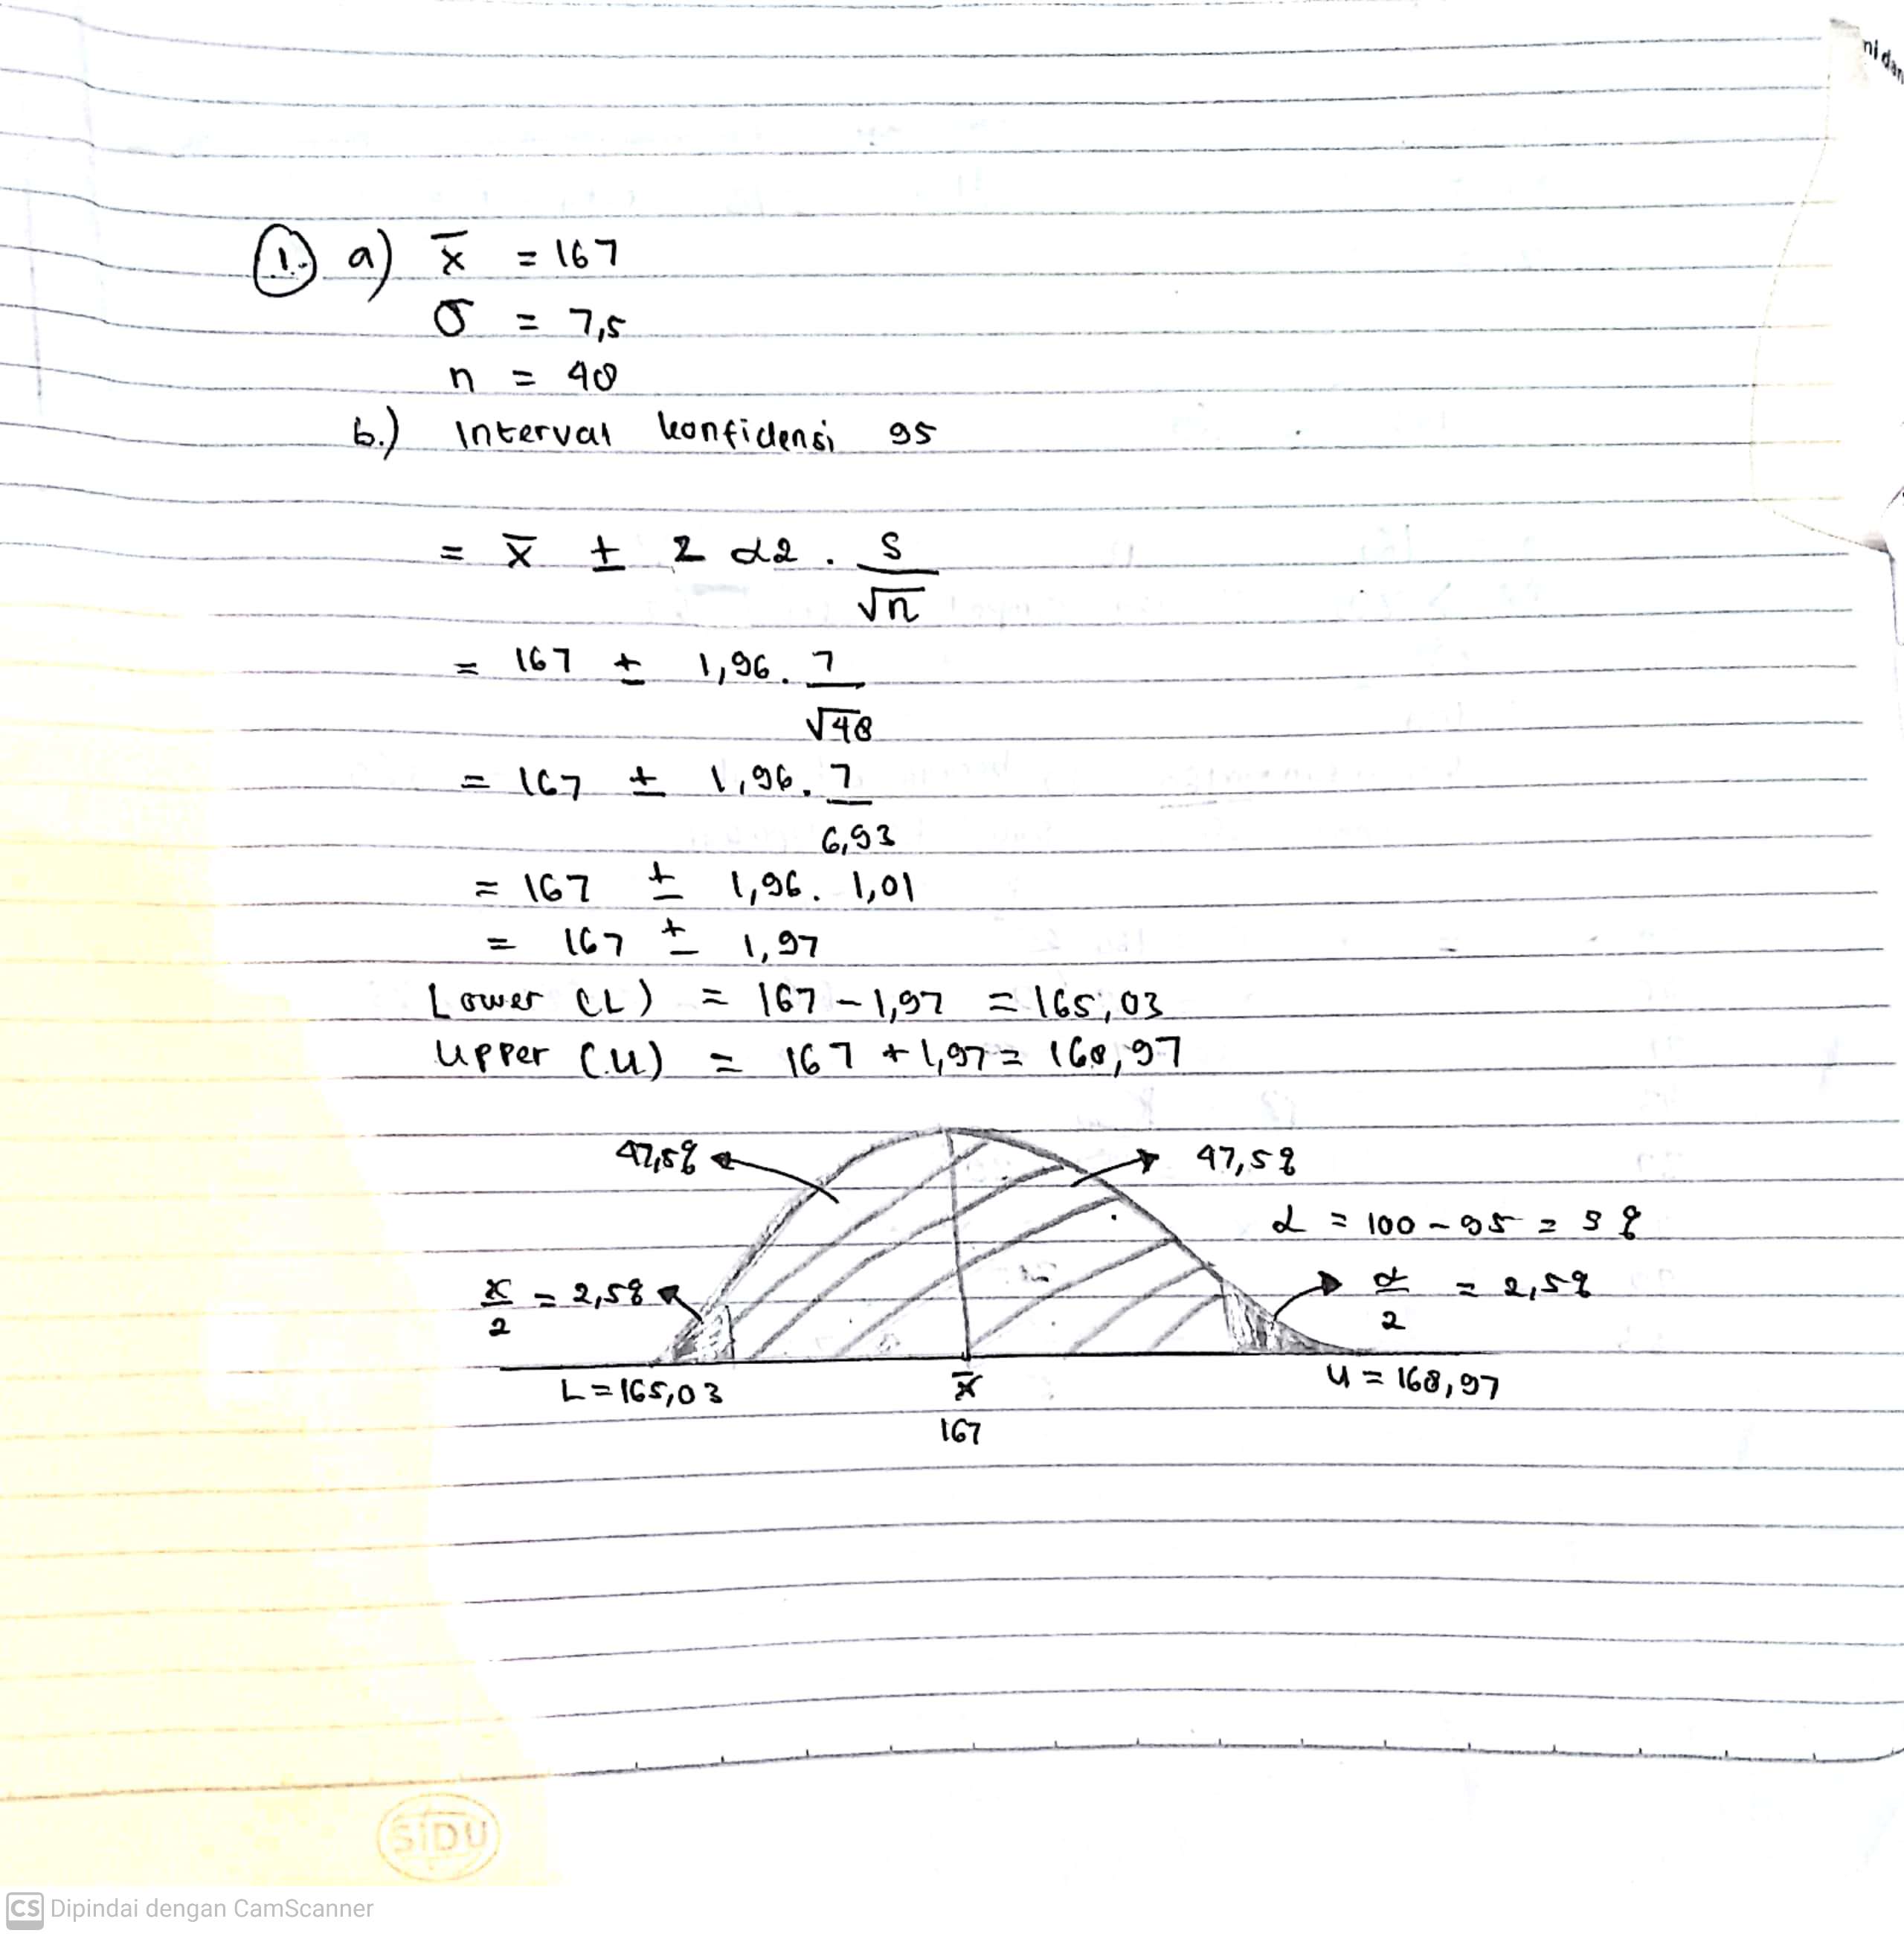 ni dan
1. a) x̄ = 167
σ = 7,5
n = 48
b.) Interval konfidensi 95
= x̄ ± Z α2 . S
√n
= 167 ± 1,96 . 7
√48
= 167 ± 1,96 . 7
6,93
= 167 ± 1,96 . 1,01
= 167 ± 1,97
Lower (L) = 167 - 1,97 = 165,03
Upper (U) = 167 + 1,97 = 168,97
47,5% 47,5%
α = 100 - 95 = 5 %
α/2 = 2,5% α/2 = 2,5%
L = 165,03 x̄ U = 168,97
167
SiDU
CS Dipindai dengan CamScanner